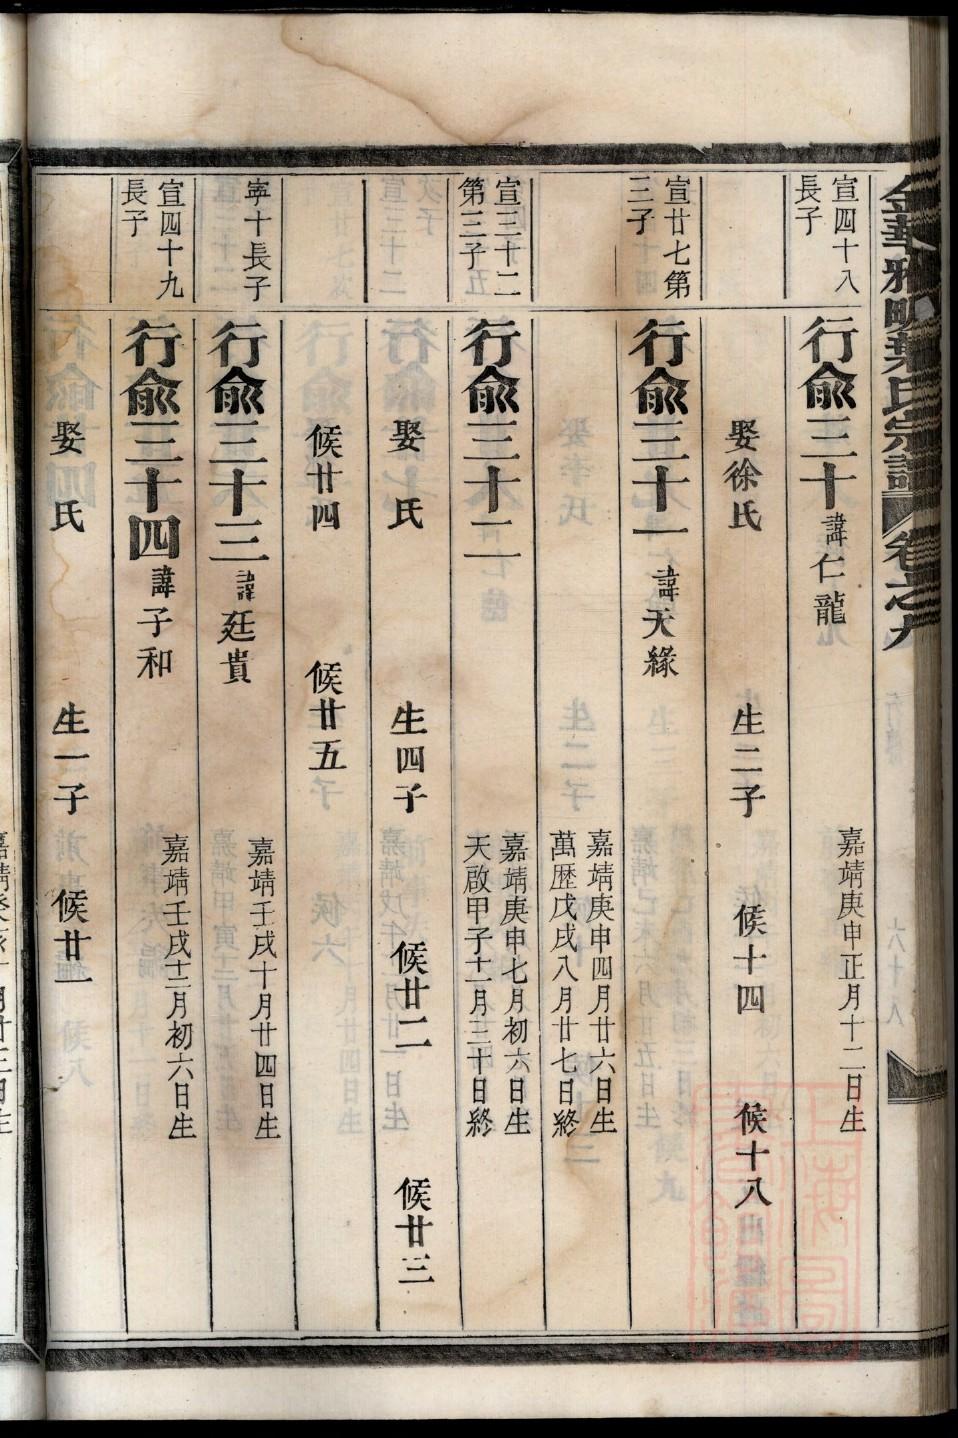 金華雅畈葉氏宗譜 卷之九
宣四十八
長子
行兪三十 諱仁龍 嘉靖庚申正月十二日生
娶徐氏 生二子 候十四 候十八
宣廿七第
三子
行兪三十一 諱天緣
嘉靖庚申四月廿六日生
萬歷戊戌八月廿七日終
宣三十二
第三子
行兪三十二
嘉靖庚申七月初六日生
天啟甲子十一月三十日終
娶 氏 生四子 候廿二 候廿三
候廿四 候廿五
寧十長子
行兪三十三 諱廷貴 嘉靖壬戌十月廿四日生
宣四十九
長子
行兪三十四 諱子和 嘉靖壬戌十二月初六日生
娶 氏 生一子 候廿一